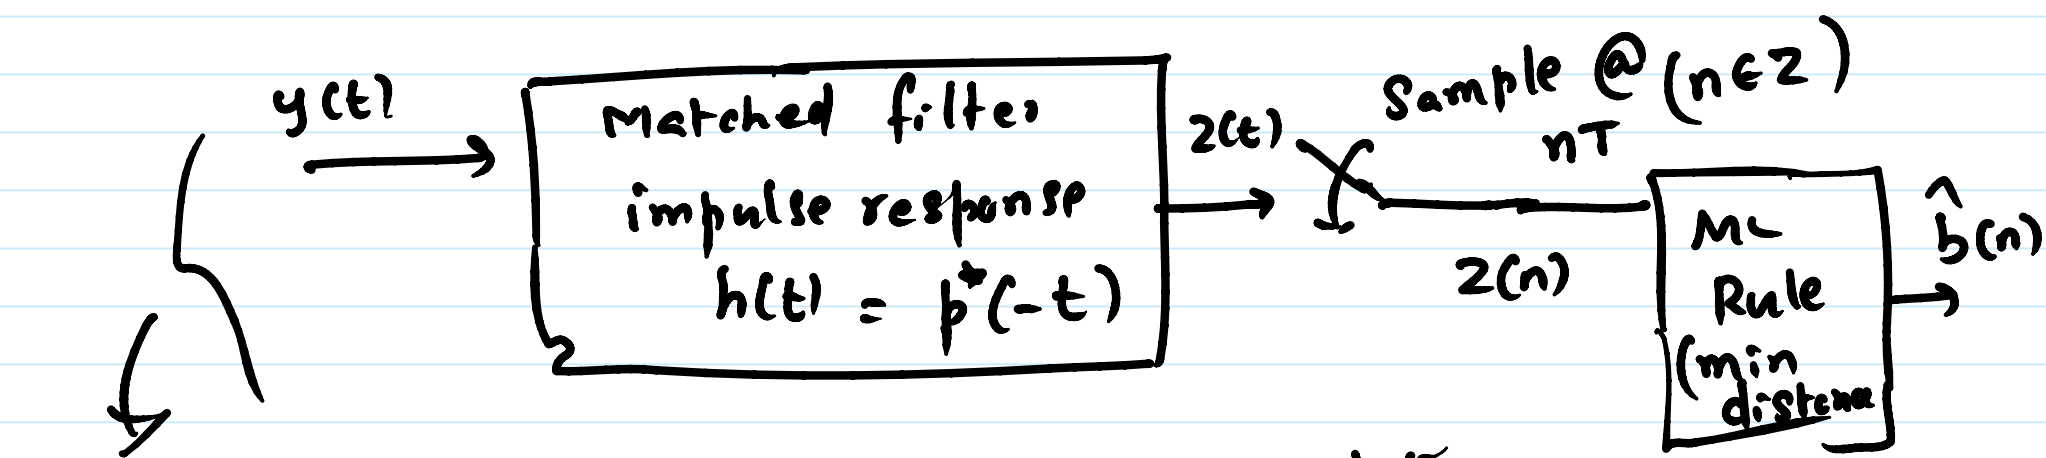 y(t)
Matched filter
impulse response
h(t) = p*(-t)
z(t)
Sample @ (n∈Z)
nT
z(n)
ML
Rule
(min
distance
b̂(n)